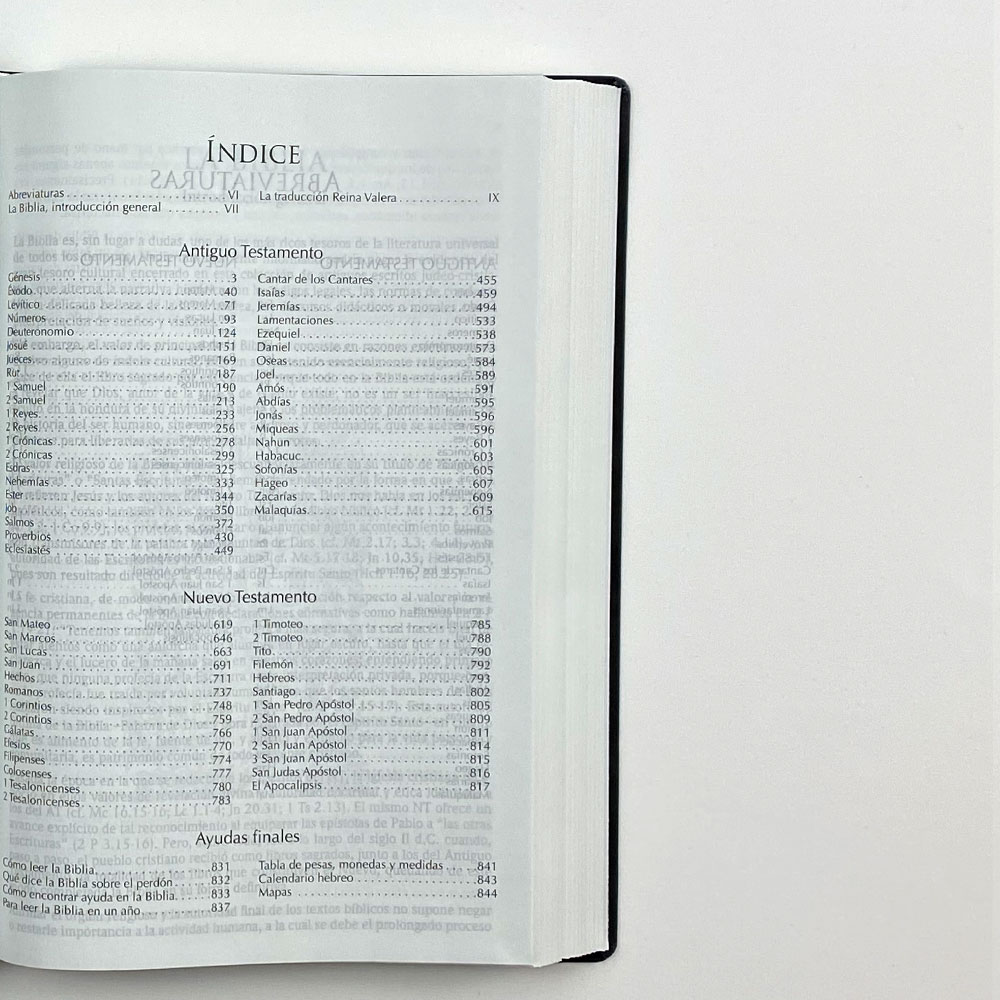 ÍNDICE
Abreviaturas . . . . . . . . . . . . . . . . . . . . . . VI
La Biblia, introducción general . . . . . . . . VII
La traducción Reina Valera . . . . . . . . . . . . IX
Antiguo Testamento
Génesis . . . 3
Éxodo . . . 40
Levítico . . . 71
Números . . . 93
Deuteronomio . . . 124
Josué . . . 151
Jueces . . . 169
Rut . . . 187
1 Samuel . . . 190
2 Samuel . . . 213
1 Reyes . . . 233
2 Reyes . . . 256
1 Crónicas . . . 278
2 Crónicas . . . 299
Esdras . . . 325
Nehemías . . . 333
Ester . . . 344
Job . . . 350
Salmos . . . 372
Proverbios . . . 430
Eclesiastés . . . 449
Cantar de los Cantares . . . 455
Isaías . . . 459
Jeremías . . . 494
Lamentaciones . . . 533
Ezequiel . . . 538
Daniel . . . 573
Oseas . . . 584
Joel . . . 589
Amós . . . 591
Abdías . . . 595
Jonás . . . 596
Miqueas . . . 596
Nahun . . . 601
Habacuc . . . 603
Sofonías . . . 605
Hageo . . . 607
Zacarías . . . 609
Malaquías . . . 615
Nuevo Testamento
San Mateo . . . 619
San Marcos . . . 646
San Lucas . . . 663
San Juan . . . 691
Hechos . . . 711
Romanos . . . 737
1 Corintios . . . 748
2 Corintios . . . 759
Gálatas . . . 766
Efesios . . . 770
Filipenses . . . 774
Colosenses . . . 777
1 Tesalonicenses . . . 780
2 Tesalonicenses . . . 783
1 Timoteo . . . 785
2 Timoteo . . . 788
Tito . . . 790
Filemón . . . 792
Hebreos . . . 793
Santiago . . . 802
1 San Pedro Apóstol . . . 805
2 San Pedro Apóstol . . . 809
1 San Juan Apóstol . . . 811
2 San Juan Apóstol . . . 814
3 San Juan Apóstol . . . 815
San Judas Apóstol . . . 816
El Apocalipsis . . . 817
Ayudas finales
Cómo leer la Biblia . . . 831
Qué dice la Biblia sobre el perdón . . . 832
Cómo encontrar ayuda en la Biblia . . . 833
Para leer la Biblia en un año . . . 837
Tabla de pesas, monedas y medidas . . . 841
Calendario hebreo . . . 843
Mapas . . . 844